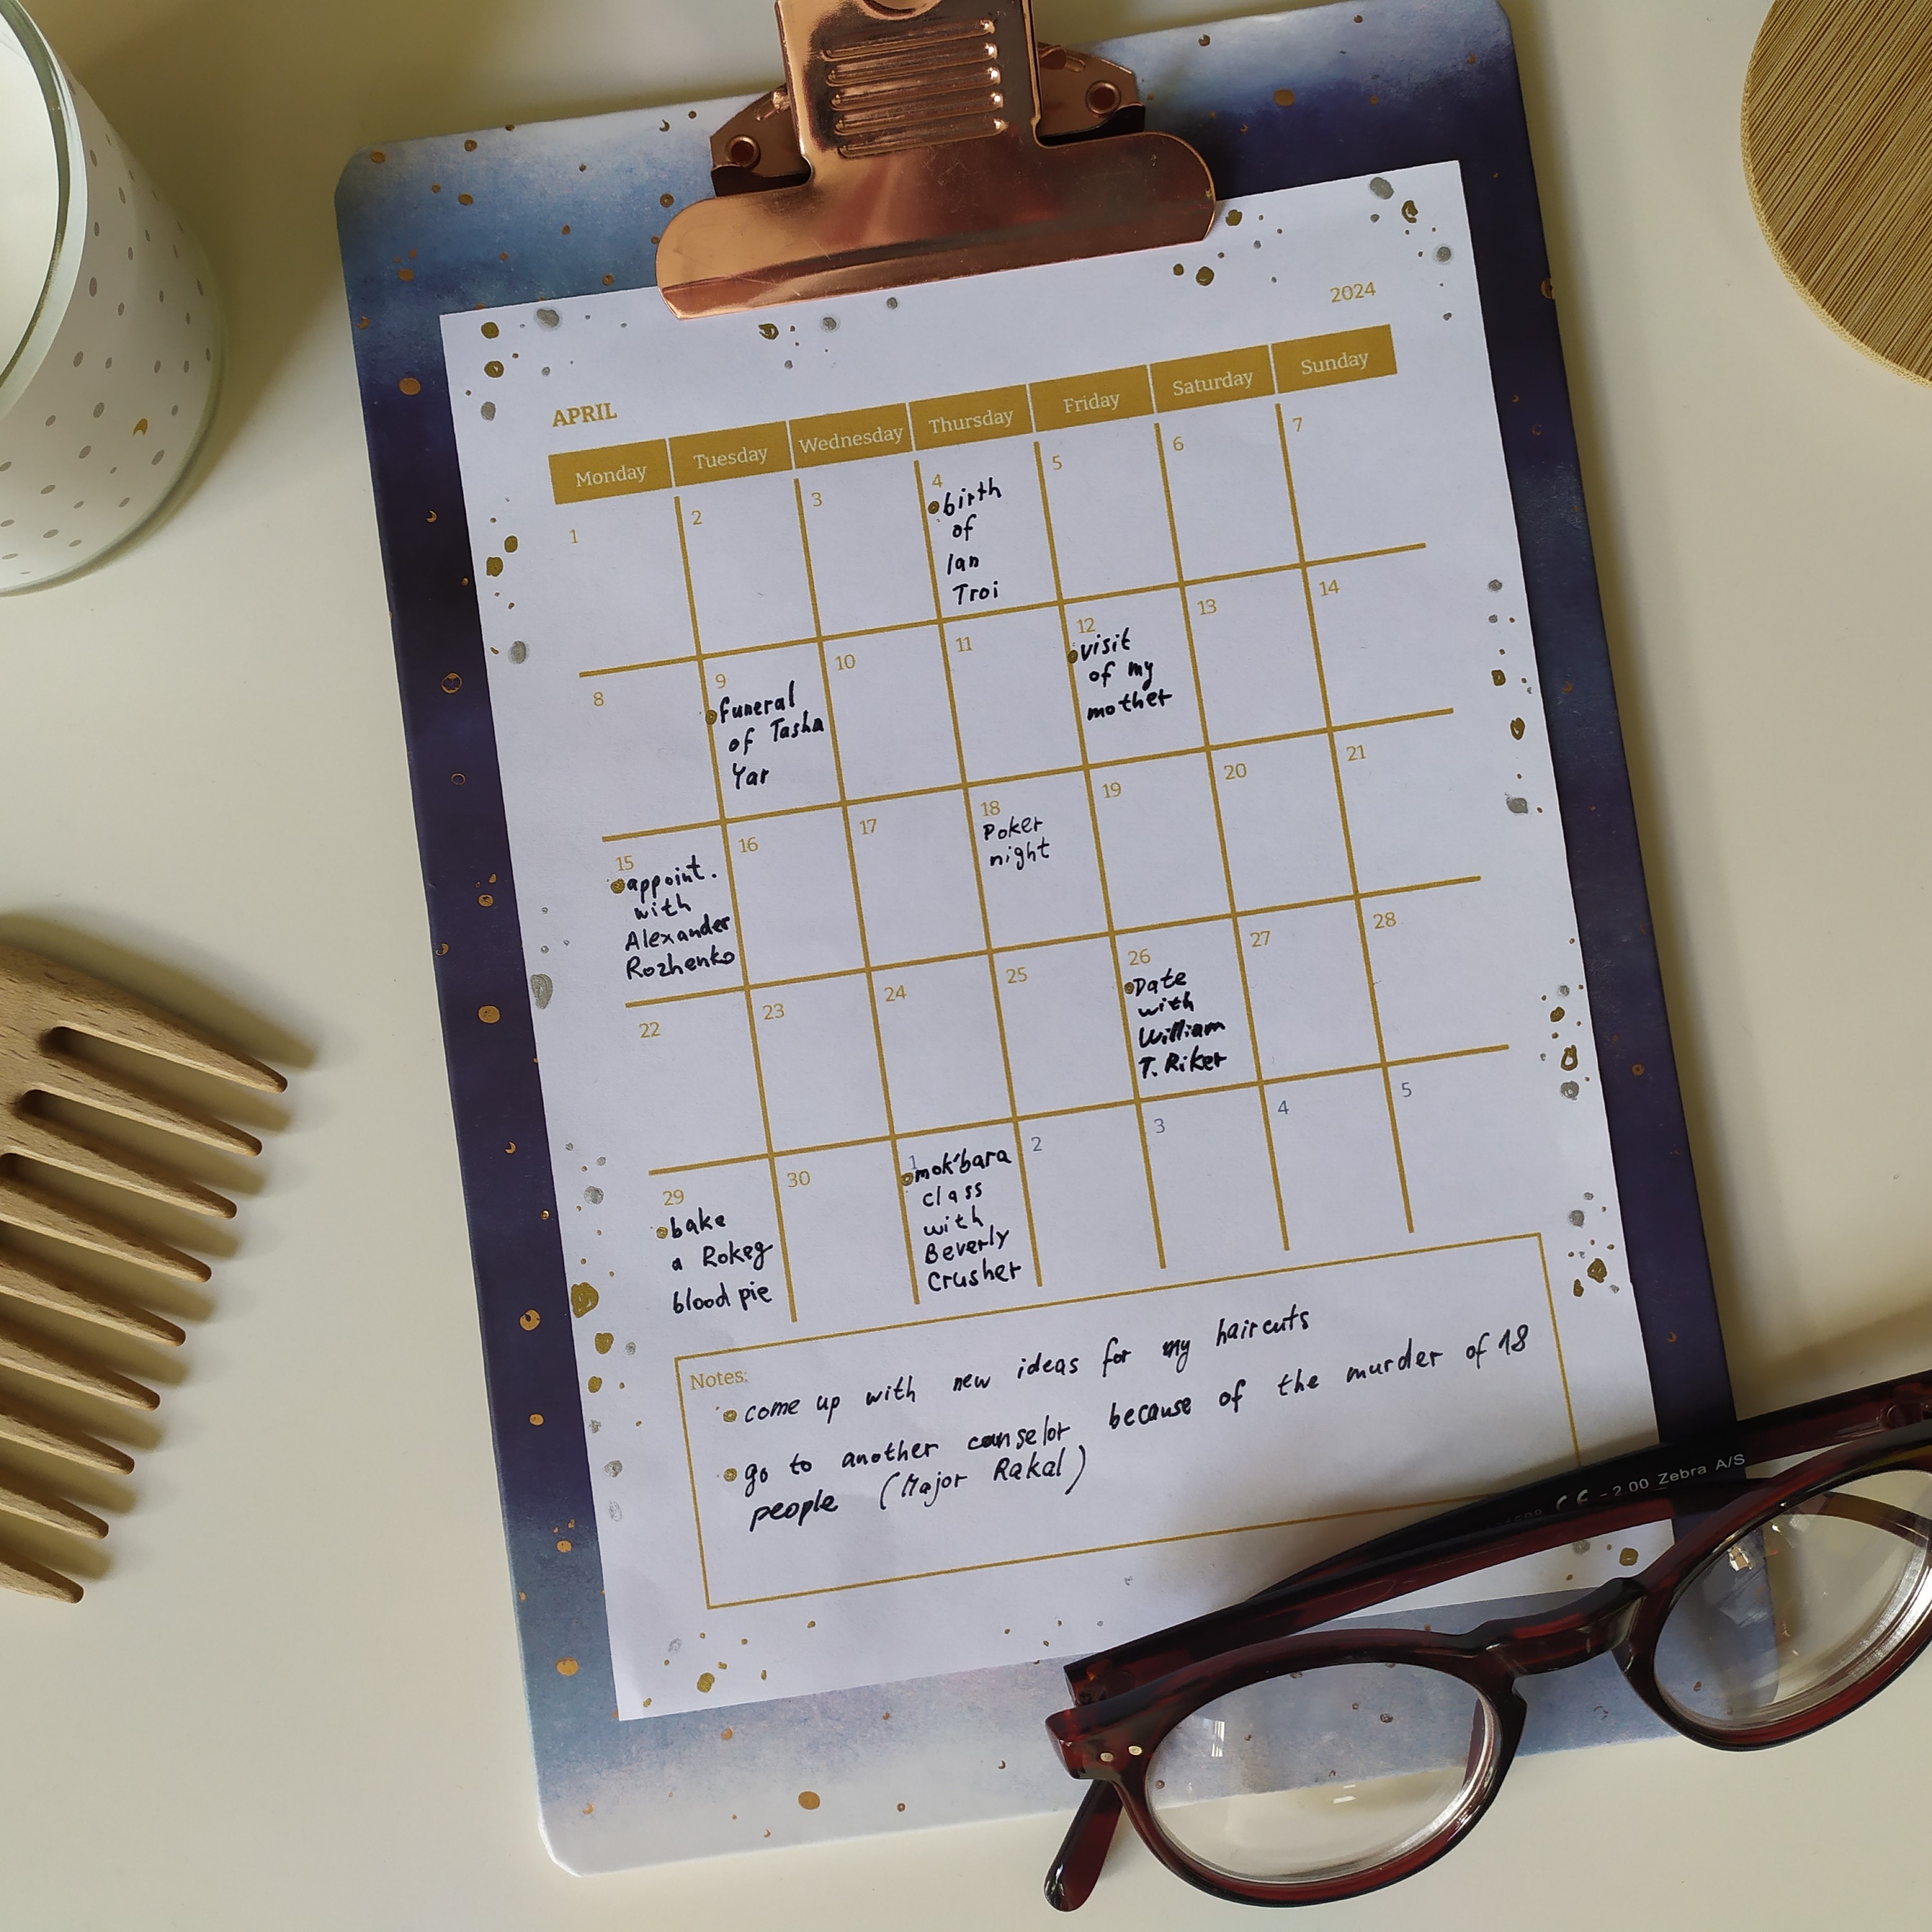 2024
APRIL
Monday Tuesday Wednesday Thursday Friday Saturday Sunday
1 2 3 4 5 6 7
birth
of
Ian
Troi
8 9 10 11 12 13 14
funeral
of Tasha
Yar
visit
of my
mother
15 16 17 18 19 20 21
appoint.
with
Alexander
Rozhenko
Poker
night
22 23 24 25 26 27 28
Date
with
William
T. Riker
29 30 1 2 3 4 5
bake
a Rokeg
blood pie
mok'bara
class
with
Beverly
Crusher
Notes:
come up with new ideas for my haircuts
go to another counselor because of the murder of 18
people (Major Rakal)
CE -2.00 Zebra A/S